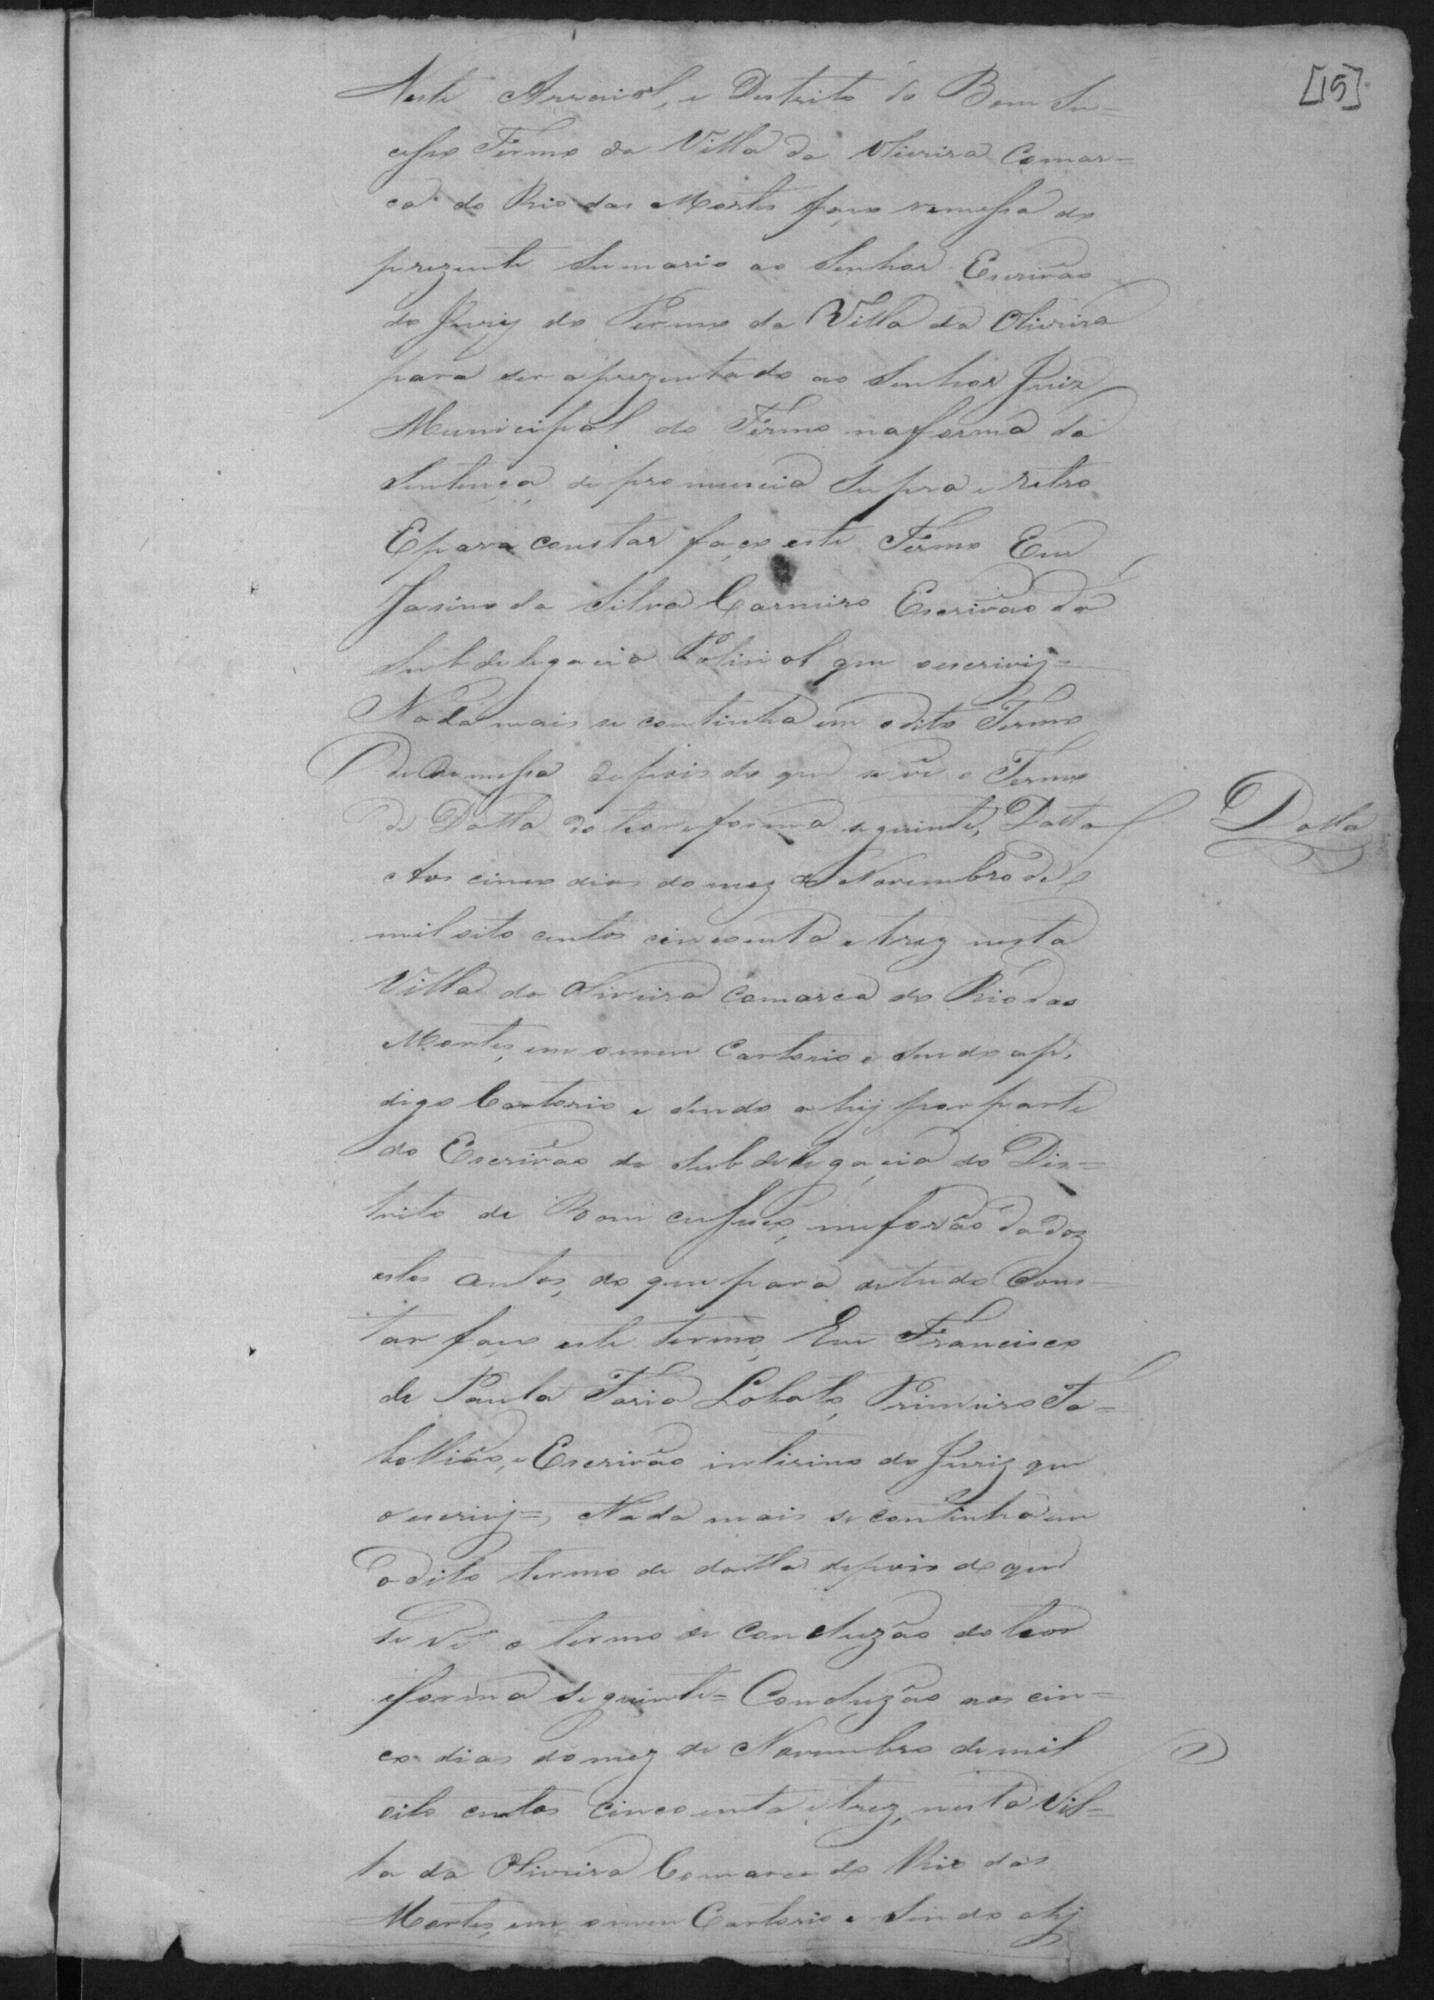 [15]
Neste Arraial, e Destrito do Bom Su=
cesso Termo da Villa da Oliveira Comar=
ca do Rio das Mortes faço remessa do
prezente Sumario ao Senhor Escrivão
do Jury do Termo da Villa da Oliveira
para ser aprezentado ao Senhor Juiz
Municipal do Termo na forma da
Sentença de pronuncia Supra e retro
E para constar faço este Termo Eu
da Silva Carneiro Escrivão da
Subdelegacia Policial que o escrivij=
Nada mais se continha em o dito Termo
de Remessa depois do que se vê o Termo
de Datta do teor e forma seguinte, Datta
Datta
Aos cinco dias do mez de Novembro de
mil oito centos cincoenta e trez nesta
Villa da Oliveira Comarca do Rio das
Mortes, em o meu Cartorio e Sendo ahi,
digo Cartorio e sendo ahij por parte
do Escrivão da Subdelegacia do Dis=
trito de Bom cusseço, me forão dadoz
estes autos, do que para de tudo Cons
tar faço este termo, Eu Francisco
de Paula Faria Lobato, Primeiro Ta=
bellião, e Escrivão intirino do Jurij que
o escrivij=, Nada mais se continha em
o dito termo de datta depois do que
se vê o termo de Conduzão do teor
e forma seguinte= Conduzão aos cin=
co dias do mez de Novembro de mil
oito centos cincoenta e trez, nesta Vil=
la da Oliveira Comarca do Rio das
Mortes, em o meu Cartorio e Sendo ahij